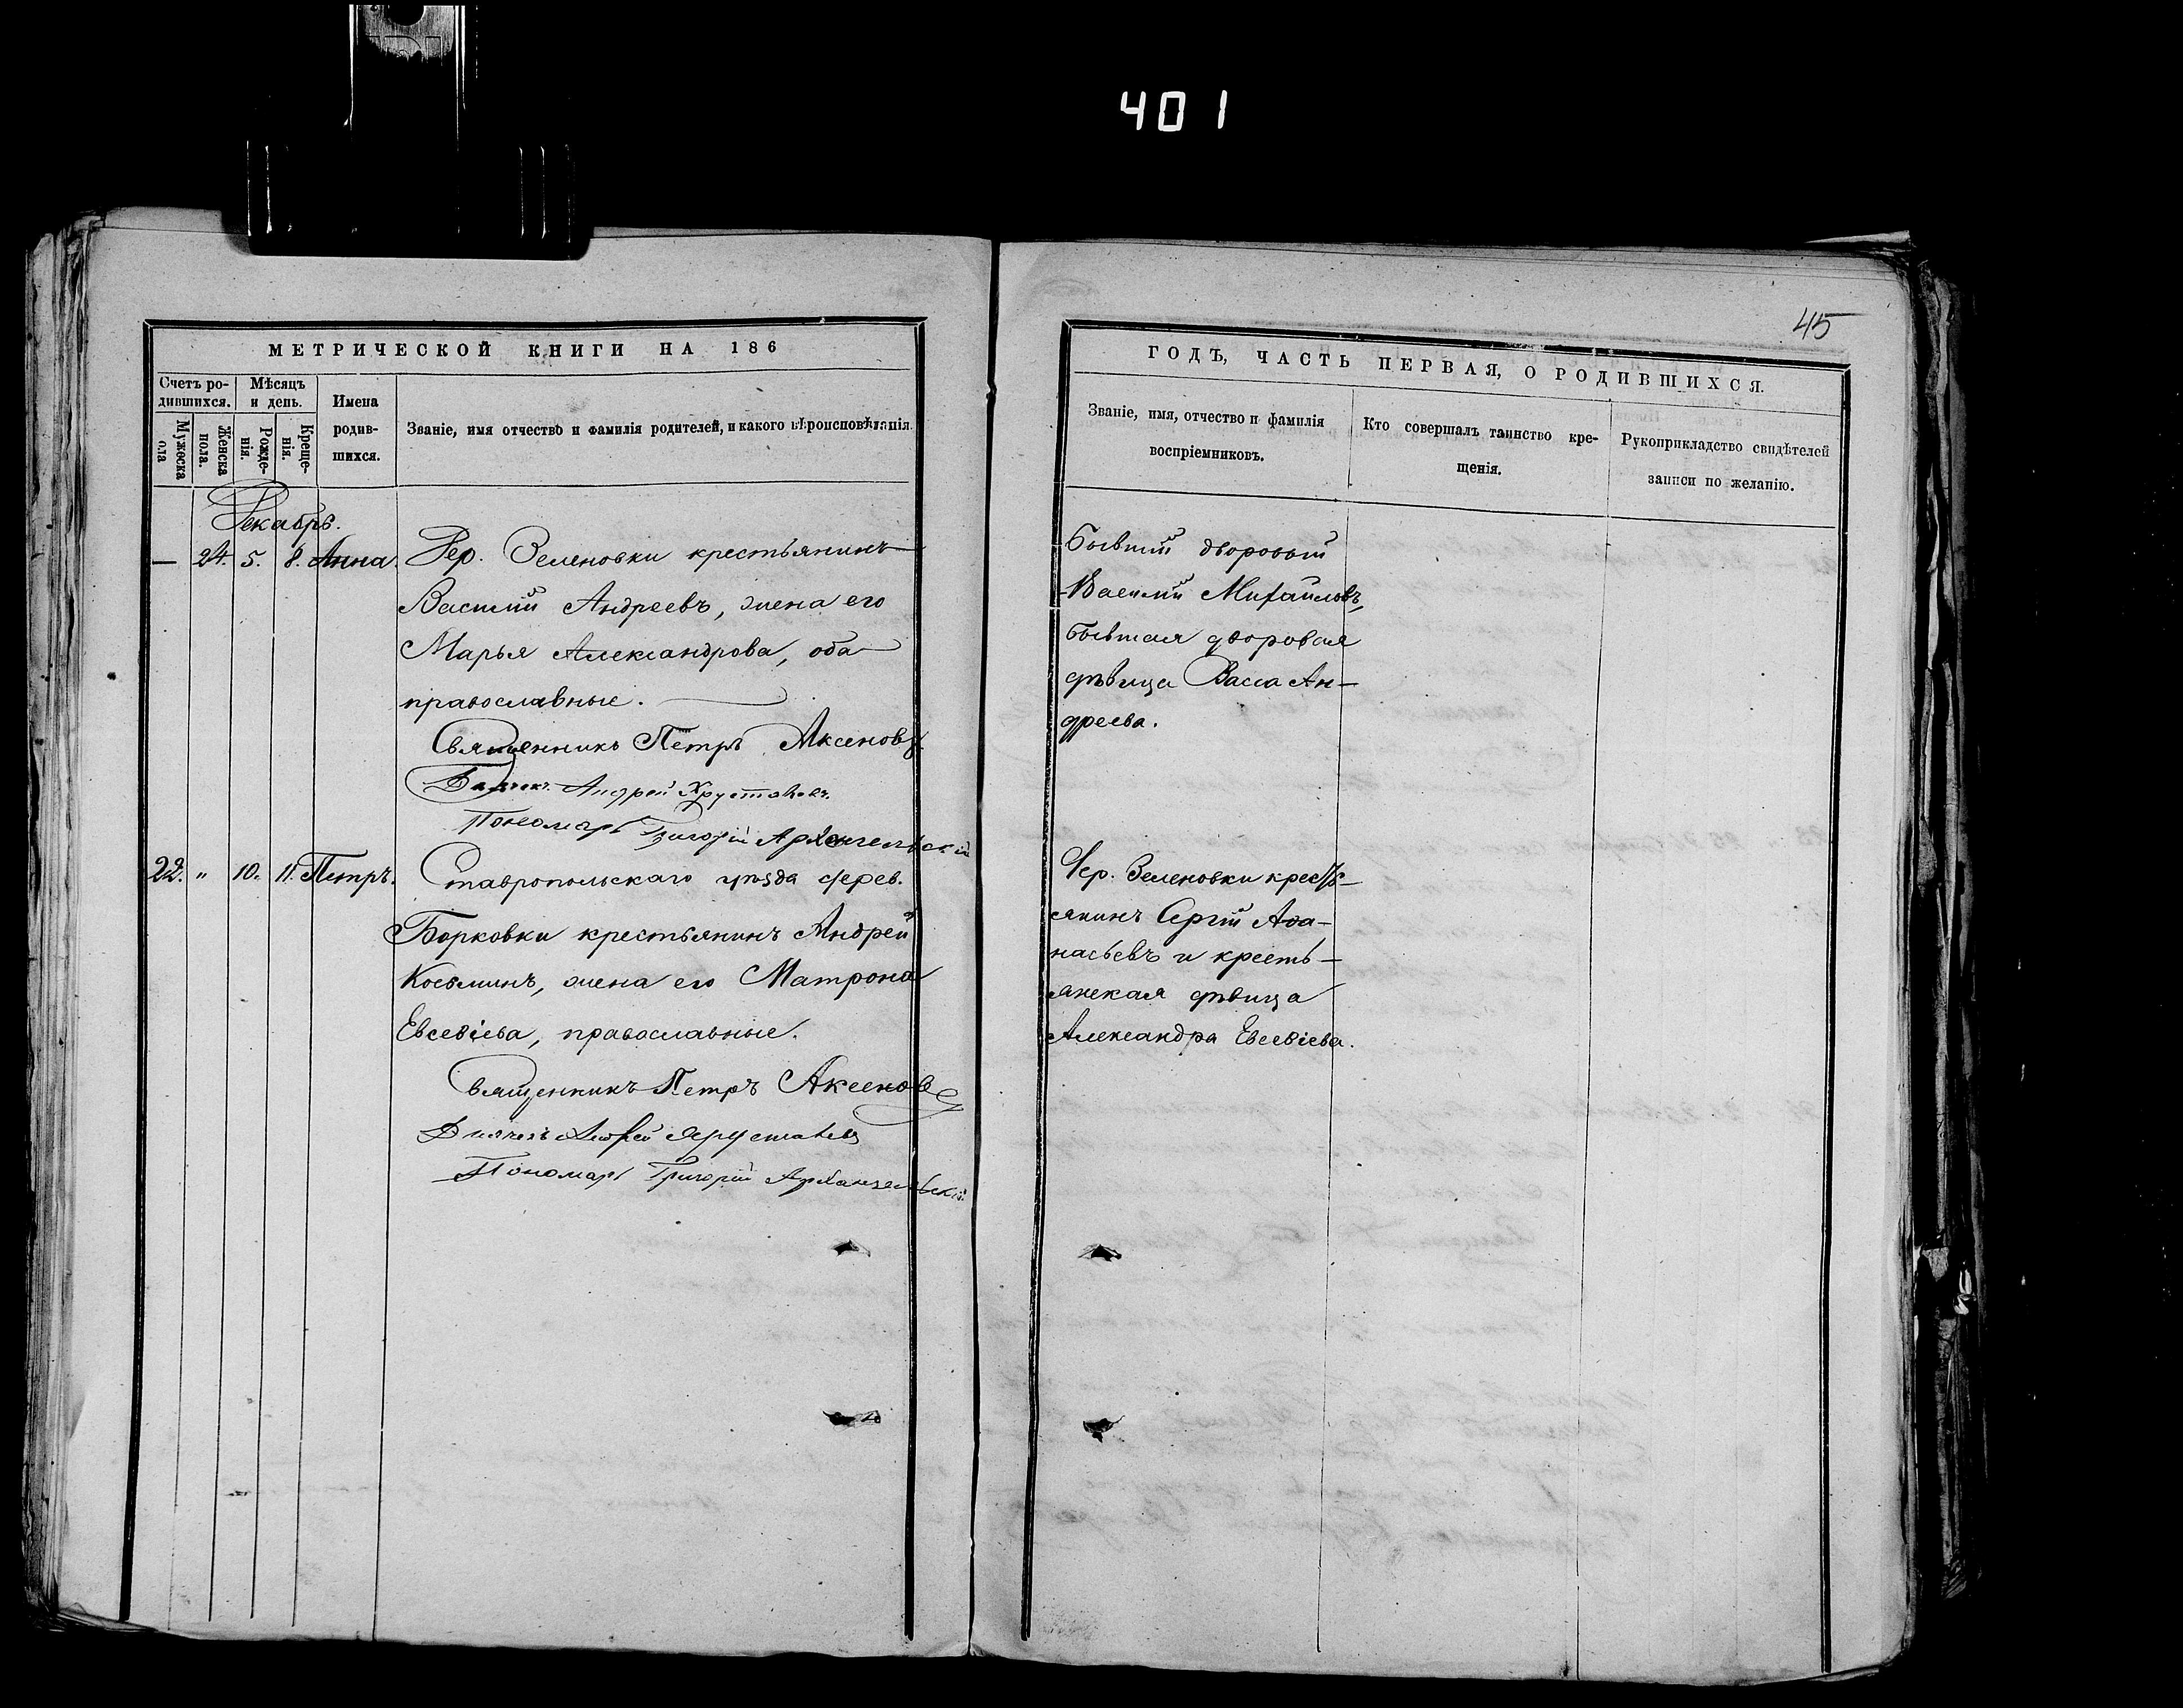 401
45
МЕТРИЧЕСКОЙ КНИГИ НА 186
Счетъ ро-
дившихся.
Мѣсяцъ
и день.
Имена
родив-
шихся.
Званіе, имя отчество и фамилія родителей, и какого вѣроисповѣданія.
Мужеска
пола
Женска
пола.
Рожде-
нія.
Креще-
нія.
Декабрь.
— 24. 5. 8. Анна. Дер. Зеленовки крестьянинъ
Василій Андреевъ, жена его
Марья Александрова, оба
православные.
Священникъ Петръ Аксеновъ
Дьячекъ Андрей Хрусталевъ.
Пономарь Григорій Архангельскій
22. " 10. 11. Петръ. Ставропольскаго уѣзда дерев.
Борковки крестьянинъ Андрей
Косьминъ, жена его Матрона
Евсевіева, православные.
Священникъ Петръ Аксеновъ
Дьячекъ Андрей Хрусталевъ
Пономарь Григорій Архангельскій
ГОДЪ, ЧАСТЬ ПЕРВАЯ, О РОДИВШИХСЯ.
Званіе, имя, отчество и фамилія
воспріемниковъ.
Кто совершалъ таинство кре-
щенія.
Рукоприкладство свидѣтелей
записи по желанію.
Бывшій дворовый
Василій Михайловъ,
бывшая дворовая
дѣвица Васса Ан-
дреева.
Дер. Зеленовки кресть-
янинъ Сергій Аѳа-
насьевъ и кресть-
янская дѣвица
Александра Евсевіева.